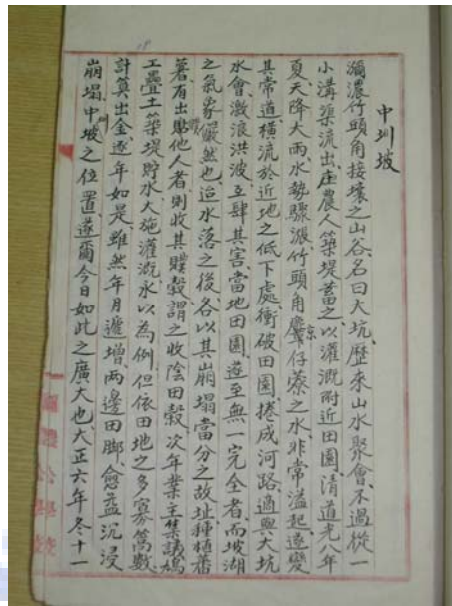 中圳坡
瀰濃竹頭角接壤之山谷、名曰大坑、歷來山水聚會、不過從一
小溝渠流出、庄農人築堤蓄之、以灌溉附近田園、清道光八年
夏、天降大雨、水勢驟漲、竹頭角、九芎仔藔之水、非常溢起、遂變
其常道、橫流於近地之低下處、衝破田園、捲成河路、適與大坑
水會、激浪洪波、互肆其害、當地田園、遂至無一完全者、而坡湖
之氣象儼然也、迨水落之後、各以其崩塌當分之故址、種植蕃
薯、有出贌他人者、則收其贌穀、謂之收陰田穀、次年業主集議、鳩
工疊土築堤、貯水大施灌溉、永以為例、但依田地之多寡、籌數
計算、出金逐年如是、雖然年月遞增、兩邊田脚、愈益沉浸
崩塌、中圳坡之位置、遂爾今日如此之廣大也、大正六年冬十一
瀰濃公學校